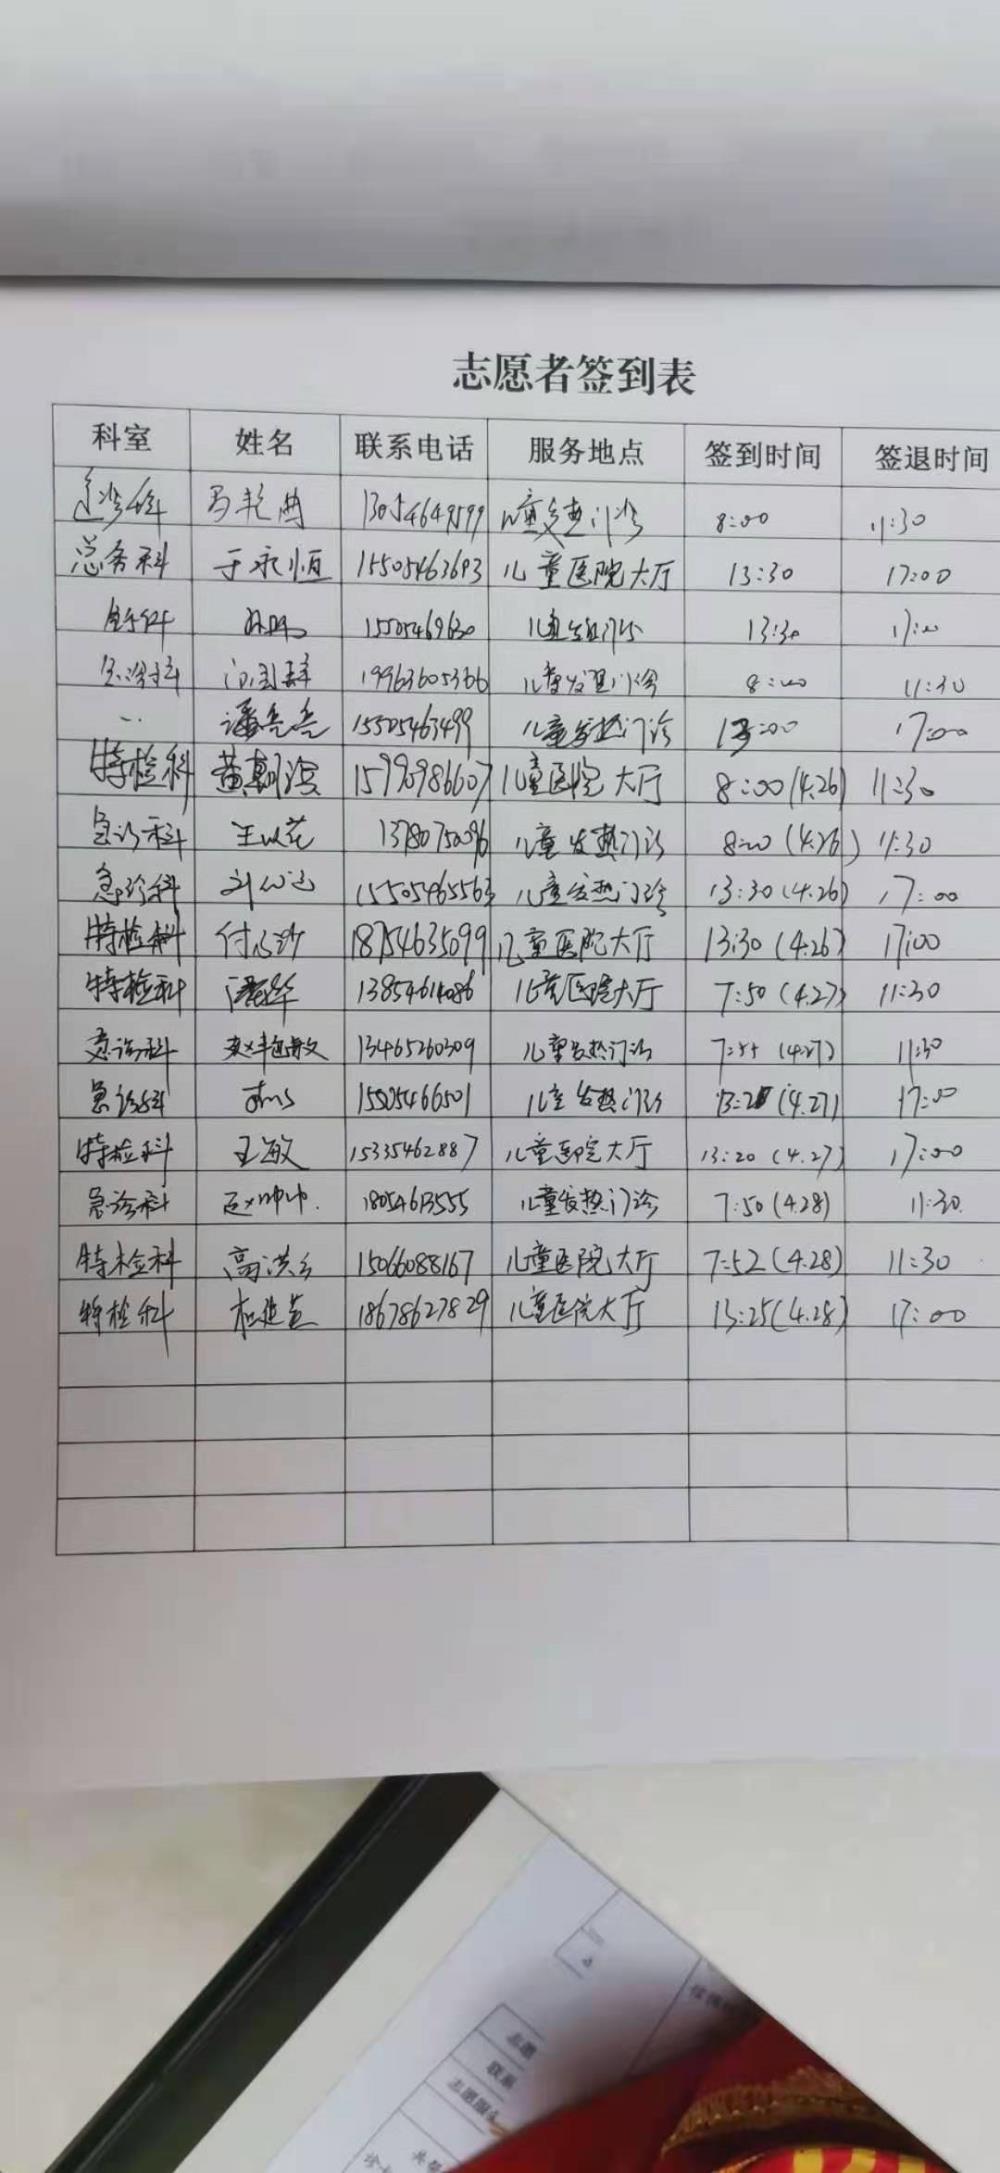 志愿者签到表
科室 姓名 联系电话 服务地点 签到时间 签退时间
马艳 13054649599 门诊 8:00 11:30
总务科 于永恒 15505463693 儿童医院大厅 13:30 17:00
15505469630 13:30 17:00
急诊科 19963605366 儿童发热门诊 8:00 11:30
潘亮亮 15505463499 儿童发热门诊 13:00 17:00
特检科 黄朝滨 儿童医院大厅 8:00(4.26) 11:30
急诊科 王以花 13780750096 儿童发热门诊 8:00(4.26) 11:30
急诊科 15505465563 儿童发热门诊 13:30(4.26) 17:00
特检科 付心沙 18754635099 儿童医院大厅 13:30(4.26) 17:00
特检科 13854614086 儿童医院大厅 7:50(4.27) 11:30
急诊科 13465260309 儿童发热门诊 (4.27) 11:30
急诊科 15505466501 儿童发热门诊 (4.27) 17:00
特检科 王敏 15335462887 儿童医院大厅 13:20(4.27) 17:00
急诊科 赵坤坤 18054613555 儿童发热门诊 7:50(4.28) 11:30
特检科 高洪 15066088167 儿童医院大厅 7:52(4.28) 11:30
特检科 18678627829 儿童医院大厅 13:25(4.28) 17:00
志愿
联系
志愿服